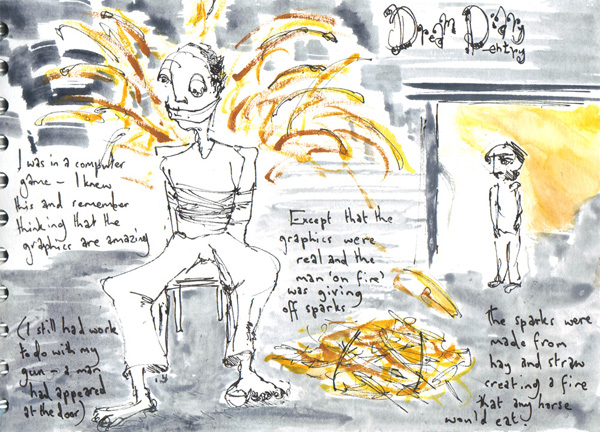 Dream Diary
entry
I was in a computer
game - I knew
this and remember
thinking that the
graphics are amazing
Except that the
graphics were
real and the
man 'on fire'
was giving
off sparks
(I still had work
to do with my
gun - a man
had appeared
at the door)
the sparks were
made from
hay and straw
creating a fire
that any horse
would eat.